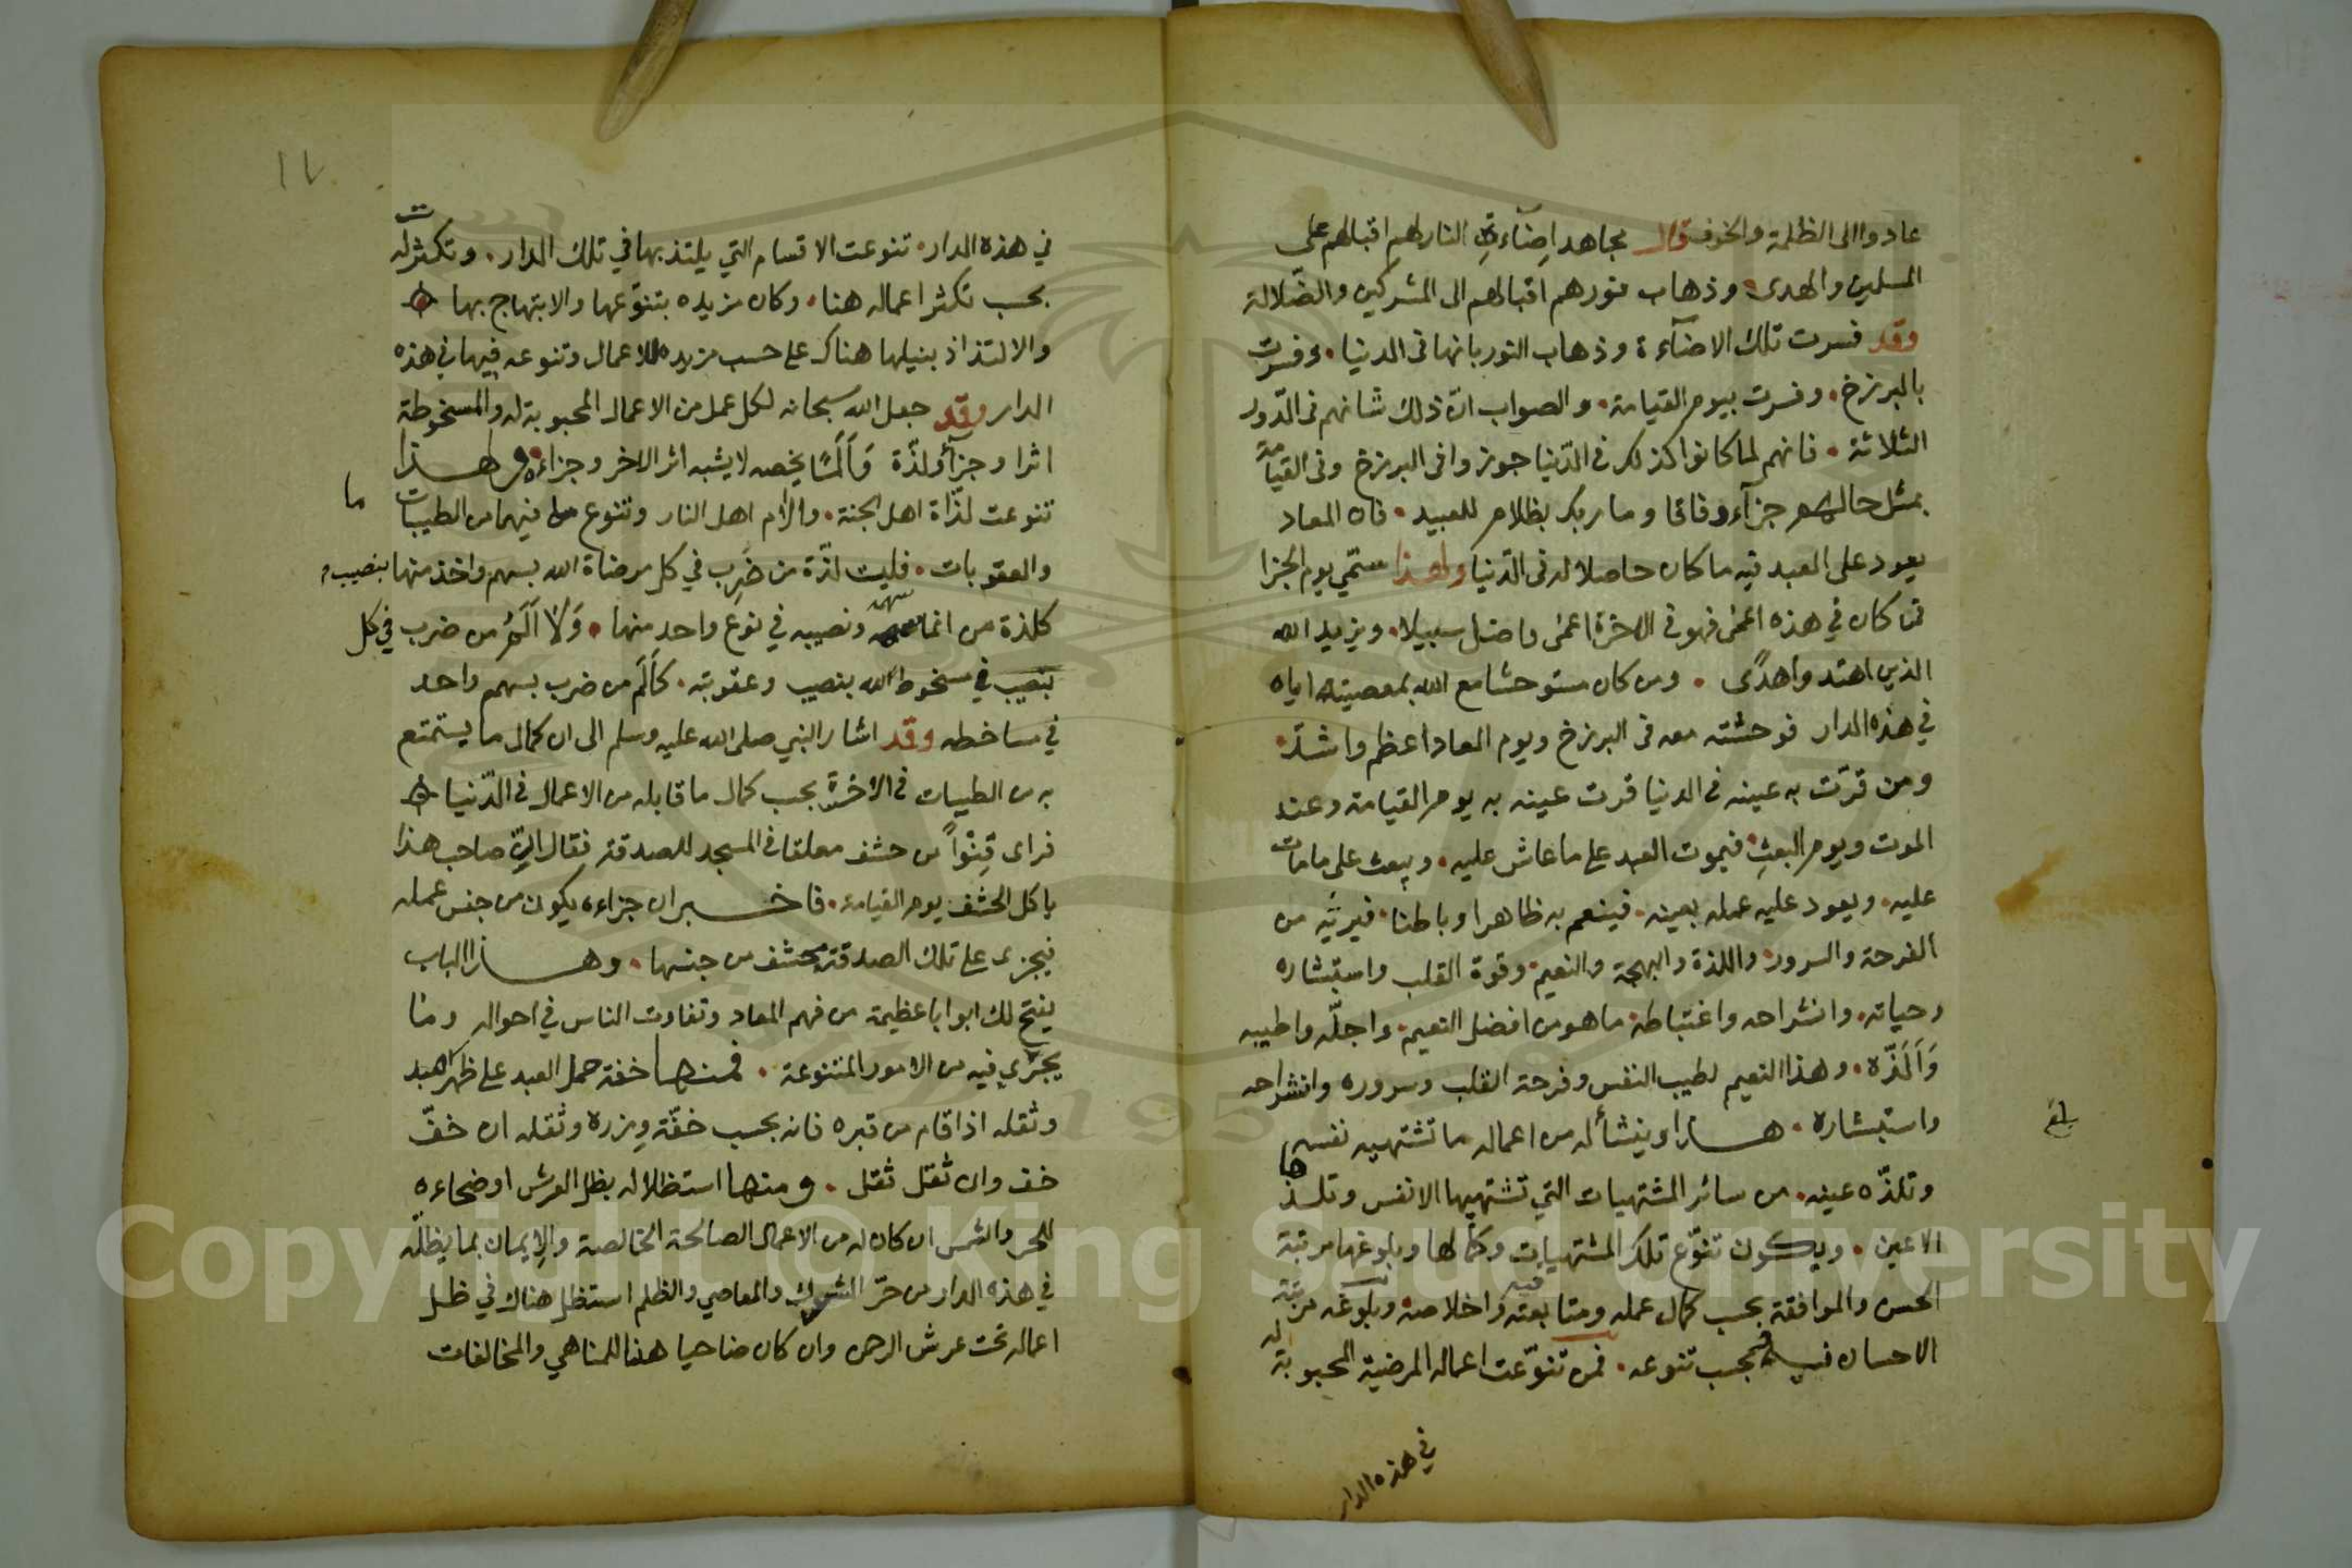 عادوا الى الظلمة والخوف قال مجاهد اضاءة النار لهم اقبالهم على
المسلمين والهدى وذهاب نورهم اقبالهم الى المشركين والضلالة
وقد فسرت تلك الاضآءة وذهاب النور بانها فى الدنيا وفسرت
بالبرزخ وفسرت بيوم القيامة والصواب ان ذلك شانهم فى الدور
الثلاثة فانهم لما كانوا كذلك فى الدنيا جوزوا فى البرزخ وفى القيامة
بمثل حالهم جزآء وفاقا وما ربك بظلام للعبيد فان المعاد
يعود على العبد فيه ما كان حاصلا له فى الدنيا ولهذا سمي يوم الجزا
فمن كان في هذه اعمى فهو فى الاخرة اعمى واضل سبيلا ويزيد الله
الذين اهتدوا هدًى ومن كان مستوحشا مع الله بمعصيته اياه
في هذه الدار فوحشته معه فى البرزخ ويوم المعاد اعظم واشد
ومن قرّت به عينه فى الدنيا قرت عينه به يوم القيامة وعند
الموت ويوم البعث فيموت العبد على ما عاش عليه ويبعث على مامات
عليه ويعود عليه عمله بعينه فينعم به ظاهرا وباطنا فيرثيه من
الفرحة والسرور واللذة والبهجة والنعيم وقوة القلب واستبشاره
وحياته وانشراحه واغتباطه ما هو من افضل النعيم واجلّه واطيبه
وَاَلَذّه وهذا النعيم لطيب النفس وفرحة القلب وسروره وانشراحه
واستبشاره هذا وينشأ له من اعماله ما تشتهيه نفسه
وتلذّه عينه من سائر المشتهيات التي تشتهيها الانفس وتلذها
الاعين ويكون تنوّع تلك المشتهيات وكمالها وبلوغها مرتبة
الحسن والموافقة بحسب كمال عمله ومتابعته فيه واخلاصه وبلوغه مرتبة
الاحسان فيه وبحسب تنوعه فمن تنوّعت اعماله المرضية المحبوبة له
في هذه الدار
بلغ
١٧
في هذه الدار تنوعت الاقسام التي يلتذ بها في تلك الدار وتكثرت له
بحسب تكثر اعماله هنا وكان مزيده بتنوّعها والابتهاج بها
والالتذاذ بنيلها هناك على حسب مزيده للاعمال وتنوعه فيها في هذه
الدار وقد جعل الله سبحانه لكل عمل من الاعمال المحبوبة له والمسخوطة
اثرا وجزآء ولذّة وَاَلَمًا يخصه لا يشبه اثر الاخر وجزاءه ولهذا
تنوعت لذّاة اهل الجنة والام اهل النار وتنوع ما فيهما من الطيبات
والعقوبات فليت لذّة من ضَرب في كل مرضاة الله بسهم واخذ منها بنصيب
كلذة من انما سهمه ونصيبه في نوع واحد منها وَلا اَلَمُ من ضرب في كل
بنصيب في مسخوط لله بنصيب وعقوبته كاَلَم من ضرب بسهم واحد
في مساخطه وقد اشار النبي صلى الله عليه وسلم الى ان كمال ما يستمتع
به من الطيبات فى الاخرة بحسب كمال ما قابله من الاعمال فى الدّنيا
فراى قِنْواً من حشف معلقا فى المسجد للصدقة فقال انّ صاحب هذا
ياكل الحشف يوم القيامة فاخبر ان جزاءه يكون من جنس عمله
فيجزى على تلك الصدقة بحشف من جنسها وهذا الباب
يفتح لك ابوابا عظيمة من فهم المعاد وتفاوت الناس في احواله وما
يجري فيه من الامور المتنوعة فمنها خفة حمل العبد على ظهره
وثقله اذا قام من قبره فانه بحسب خفّة وزره وثقله ان خفّ
خف وان ثقل ثقل ومنها استظلاله بظل العرش او ضحاءه
للحر والشمس ان كان له من الاعمال الصالحة الخالصة والايمان بما يظلّه
في هذه الدار من حرّ الشرك والمعاصي والظلم استظل هناك في ظل
اعماله تحت عرش الرحمن وان كان ضاحيا هنا للمناهي والمخالفات
Copyright © King Saud University
1957